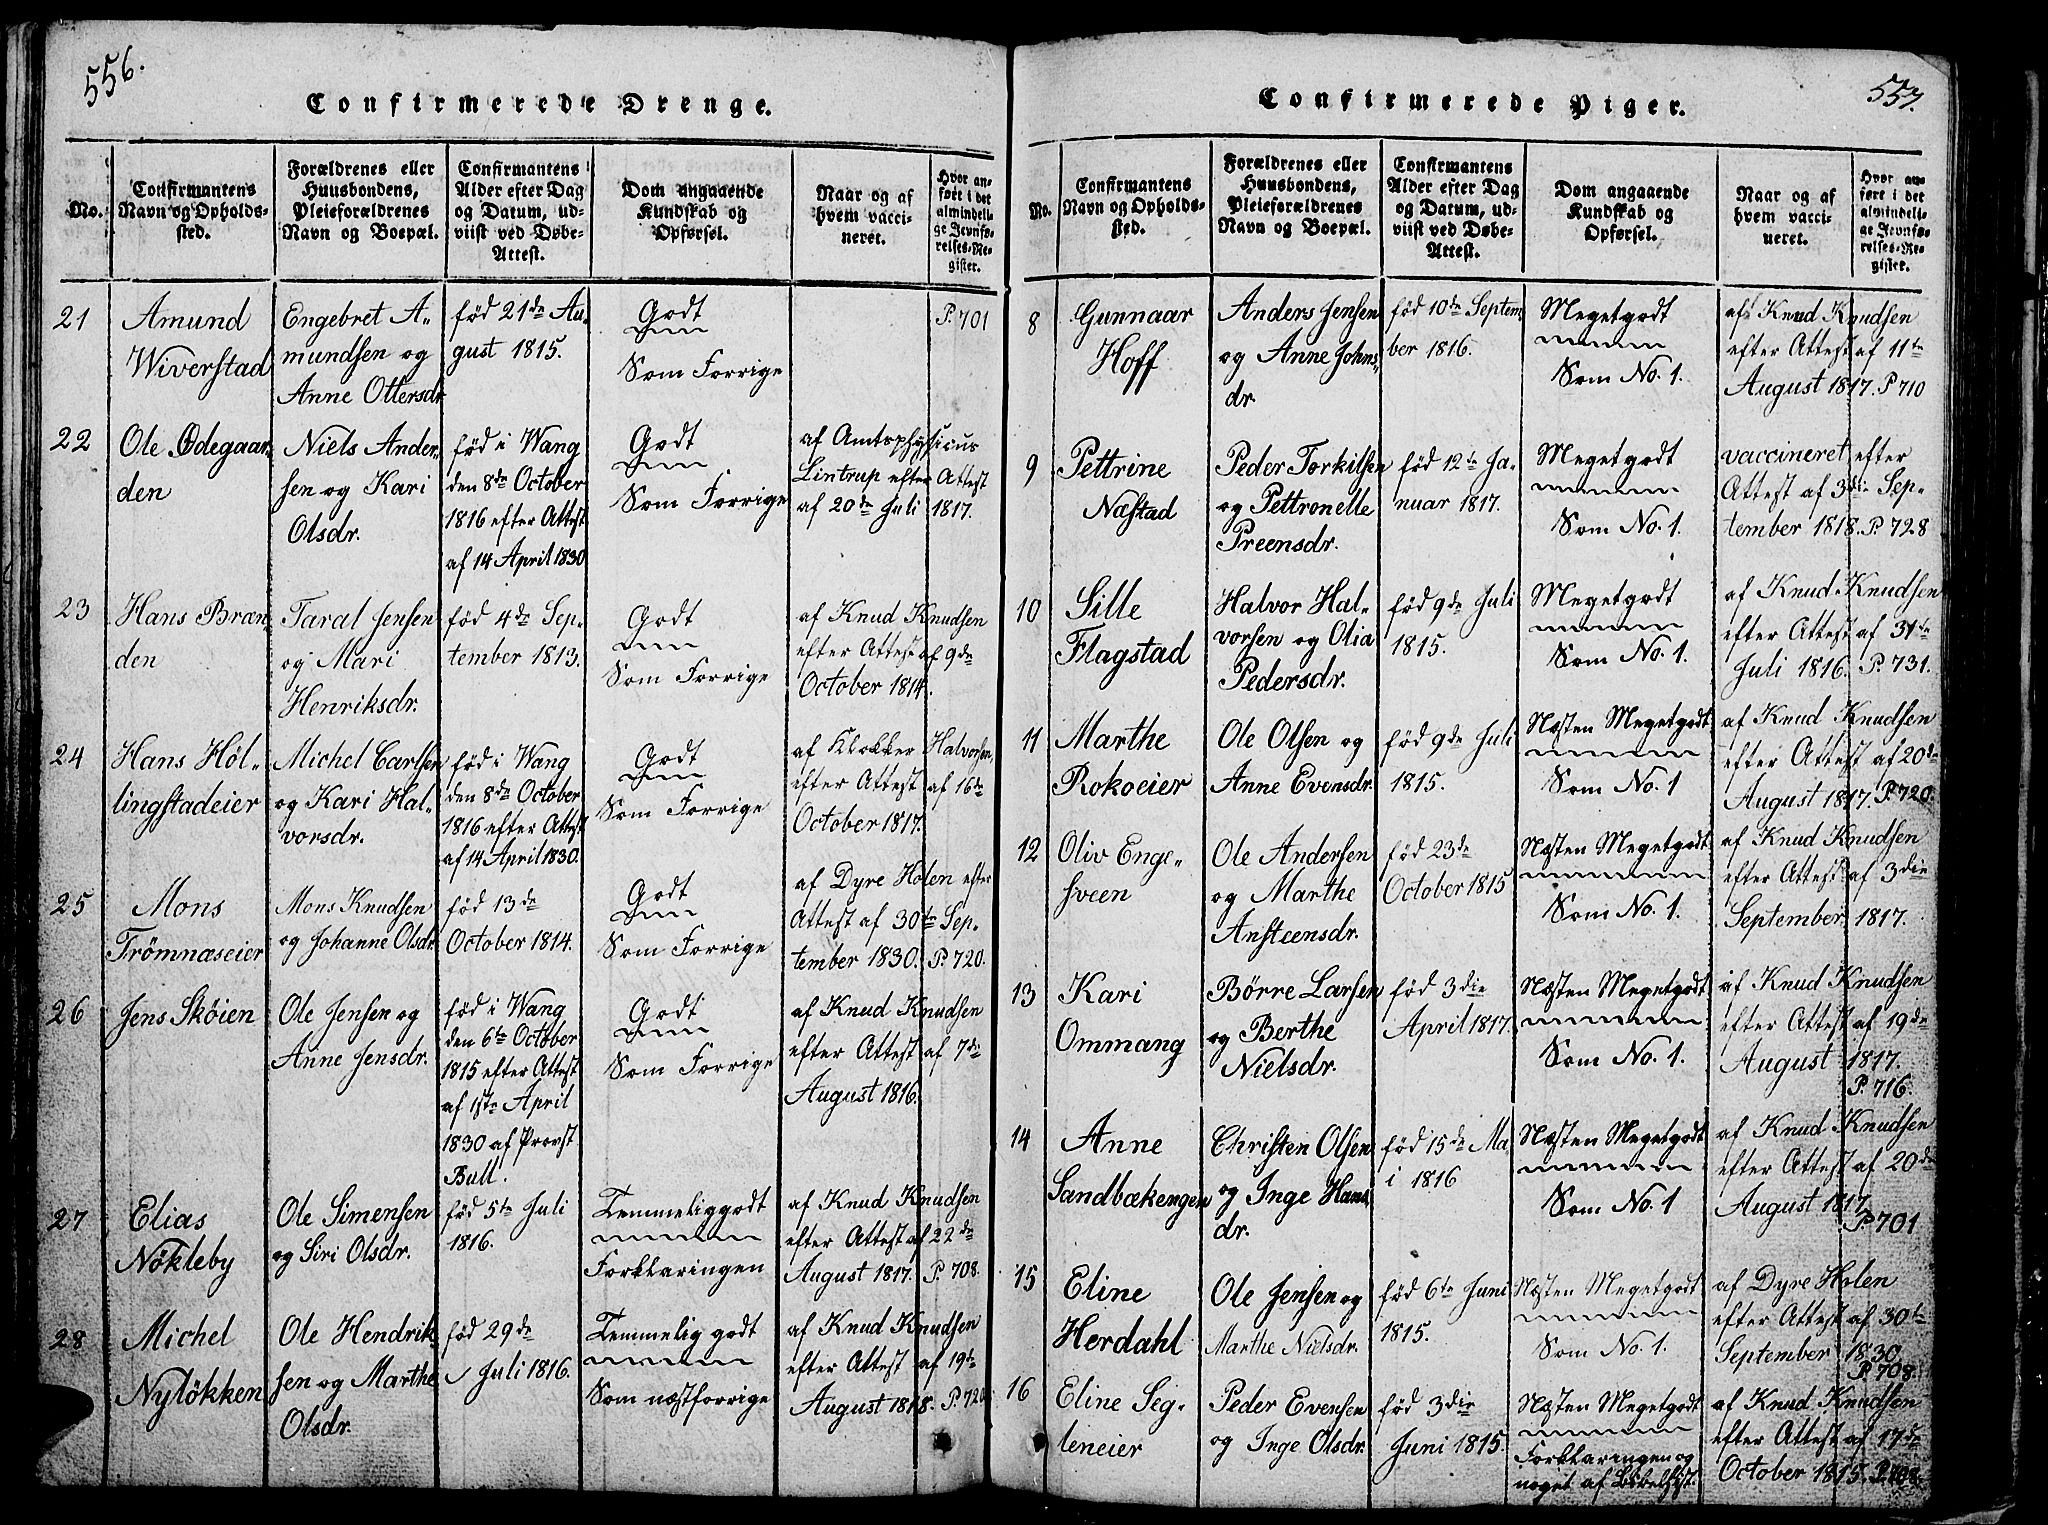 556.
Confirmerede Drenge.
No.
Confirmantens
Navn og Opholds-
sted.
Forældrenes eller
Huusbondens,
Pleieforældrenes
Navn og Boepæl.
Confirmantens
Alder efter Dag
og Datum, ud-
viist ved Døbe-
Attest.
Dom angaaende
Kundskab og
Opførsel.
Naar og af
hvem vacci-
neret.
Hvor an-
ført i det
almindeli-
ge Jevnfø-
relses-Re-
gister.
21
Amund
Wiverstad
Engebret A-
mundsen og
Anne Ottersdr
fød 21de Au-
gust 1815.
Godt
Som Forrige
P. 701
22
Ole Ödegaar-
den
Niels Ander-
sen og Kari
Olsdr.
fød i Wang
den 8de October
1816 efter Attest
af 14 April 1830
Godt
Som Forrige
af Amtsphysicus
Lintrup efter Attest
af 20de Juli 1817.
23
Hans Bræn-
den
Taral Jensen
og Mari
Henriksdr.
fød 4de Sep-
tember 1813.
Godt
Som Forrige
af Knud Knudsen
efter Attest af 9de
October 1814.
24
Hans Høl-
lingstadeier
Michel Carlsen
og Kari Hal-
vorsdr.
fød i Wang
den 8de October
1816 efter Attest
af 14 April 1830.
Godt
Som Forrige
af Klokker Halvorsen,
efter Attest af 16de
October 1817.
25
Mons
Trömnæseier
Mons Knudsen
og Johanne Olsdr.
fød 13de
October 1814.
Godt
Som Forrige
af Dyre Holen efter
Attest af 30te Sep-
tember 1830. P. 720.
26
Jens Sköien
Ole Jensen og
Anne Jensdr.
fød i Wang
den 6te October
1815 efter Attest
af 1ste April
1830 af Provst
Bull.
Godt
Som Forrige
af Knud Knudsen
efter Attest af 7de
August 1816.
27
Elias
Nökleby
Ole Simensen
og Siri Olsdr.
fød 5te Juli
1816.
Temmeliggodt
Forklaringen
af Knud Knudsen
efter Attest af 22de
August 1817. P. 708.
28
Michel
Nylökken
Ole Hendrik-
sen og Marthe
Olsdr.
fød 29de
Juli 1816.
Temmelig godt
Som næstforrige
af Knud Knudsen
efter Attest af 19de
August 1818. P. 720
557.
Confirmerede Piger.
No.
Confirmantens
Navn og Opholds-
sted.
Forældrenes eller
Huusbondens,
Pleieforældrenes
Navn og Boepæl.
Confirmantens
Alder efter Dag
og Datum, ud-
viist ved Døbe-
Attest.
Dom angaaende
Kundskab og
Opførsel.
Naar og af
hvem vacci-
neret.
Hvor an-
ført i det
almindeli-
ge Jevnfø-
relses-Re-
gister.
8
Gunnaar
Hoff
Anders Jensen
og Anne Johns-
dr.
fød 10de Septem-
ber 1816.
Megetgodt
Som No. 1.
af Knud Knudsen
efter Attest af 11te
August 1817. P 710
9
Pettrine
Næstad
Peder Torkilsen
og Pettronelle
Preensdr.
fød 12te Ja-
nuar 1817.
Megetgodt
Som No. 1.
vaccineret efter
Attest af 3die Sep-
tember 1818. P. 728
10
Sille
Flagstad
Halvor Hal-
vorsen og Olia
Pedersdr.
fød 9de Juli
1815.
Megetgodt
Som No. 1.
af Knud Knudsen
efter Attest af 31de
Juli 1816. P. 731.
11
Marthe
Rokoeier
Ole Olsen og
Anne Evensdr.
fød 9de Juli
1815.
Næsten Megetgodt
Som No. 1
af Knud Knudsen
efter Attest af 20de
August 1817. P. 720.
12
Oliv Enge-
sveen
Ole Andersen
og Marthe
Ansteensdr.
fød 23de
October 1815
Næsten Megetgodt
Som No. 1.
af Knud Knudsen
efter Attest af 3die
September 1817.
13
Kari
Ommang
Börre Larsen
og Berthe
Nielsdr.
fød 3die
April 1817.
Næsten Megetgodt
Som No. 1.
af Knud Knudsen
efter Attest af 19de
August 1817.
P. 716.
14
Anne
Sandbækengen
Christen Olsen
og Inge Hans-
dr.
fød 15de Ma-
i 1816
Næsten Megetgodt
Som No. 1
af Knud Knudsen
efter Attest af 20de
August 1817
P. 701
15
Eline
Herdahl
Ole Jensen og
Marthe Nielsdr.
fød 6te Juni
1815.
Næsten Megetgodt
Som No. 1.
af Dyre Holen
efter Attest af 30te
September 1830
P. 708.
16
Eline Seg-
leneier
Peder Evensen
og Inge Olsdr.
fød 3die
Juni 1815.
Næsten Megetgodt
Forklaringen og
noget af Bibelhist.
af Knud Knudsen
efter Attest af 17de
October 1815.